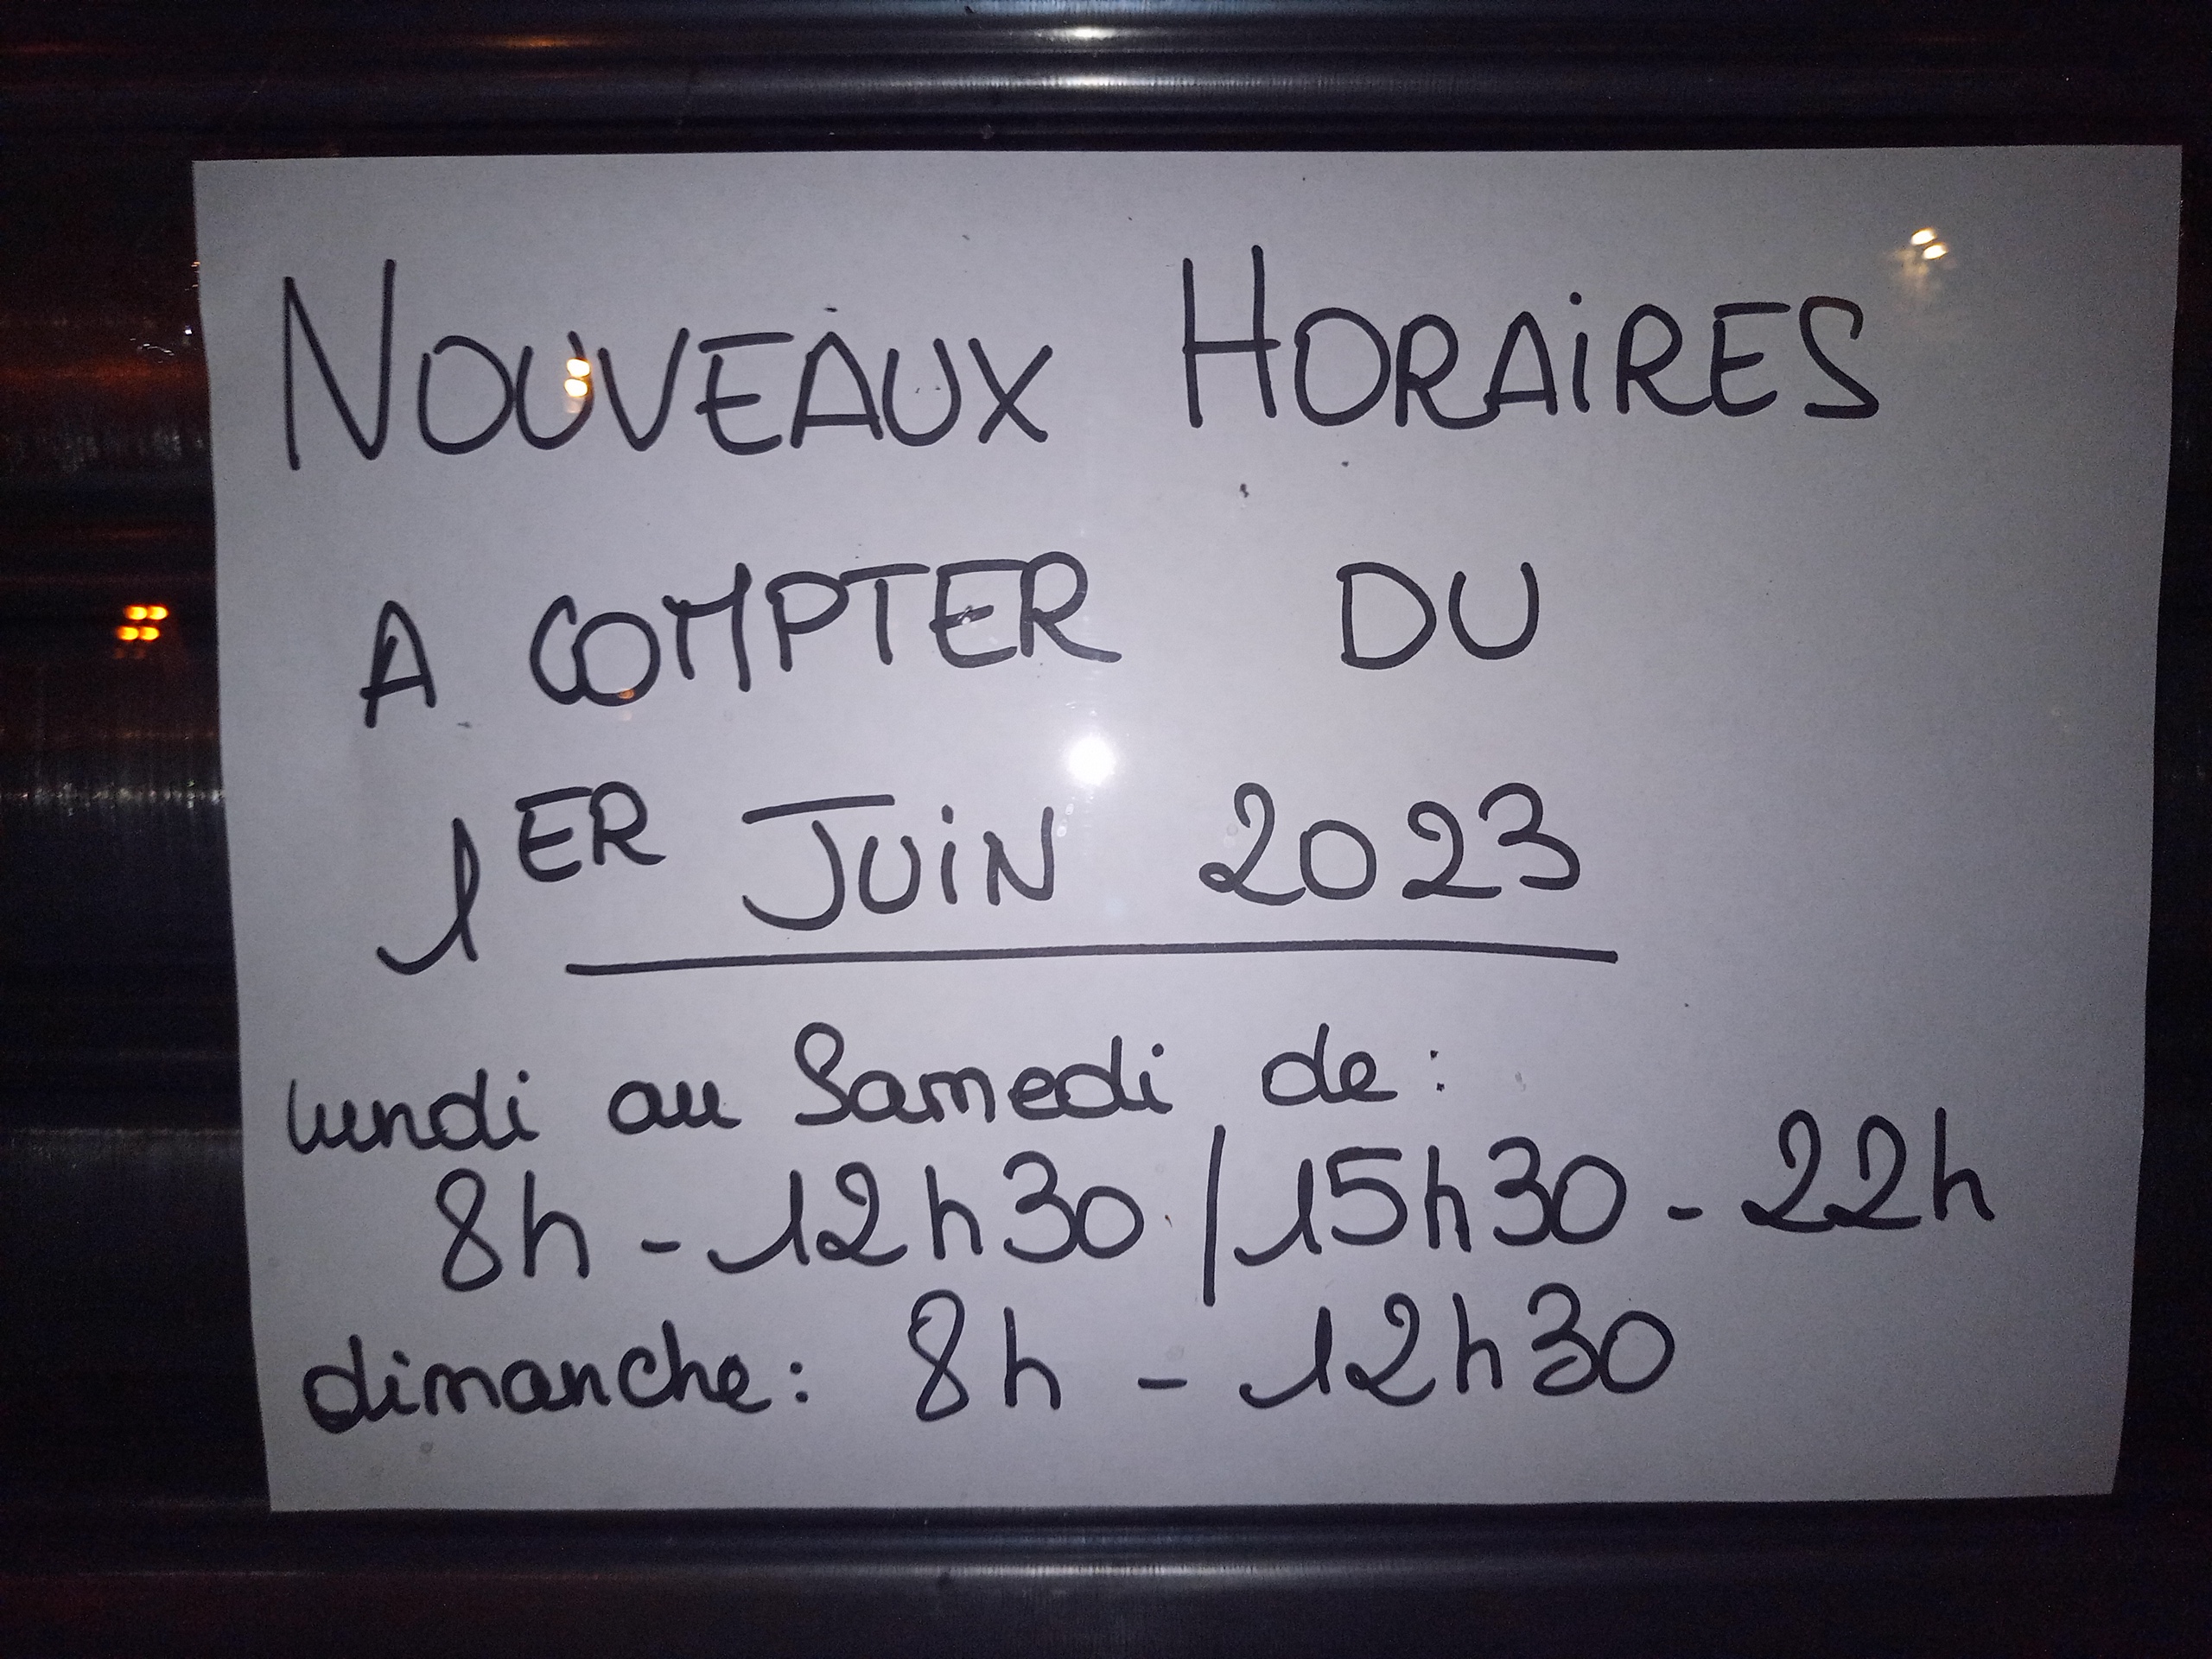 NOUVEAUX HORAiRES
A COMPTER DU
1ER JUiN 2023
lundi au Samedi de :
8h - 12h30 / 15h30 - 22h
dimanche : 8h - 12h30